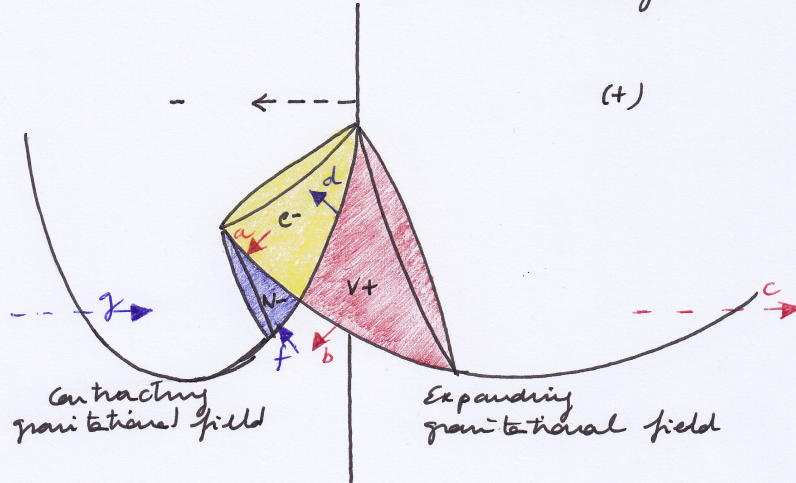 -
(+)
d
e-
a
N-
V+
g
c
f
b
Contracting
gravitational field
Expanding
gravitational field